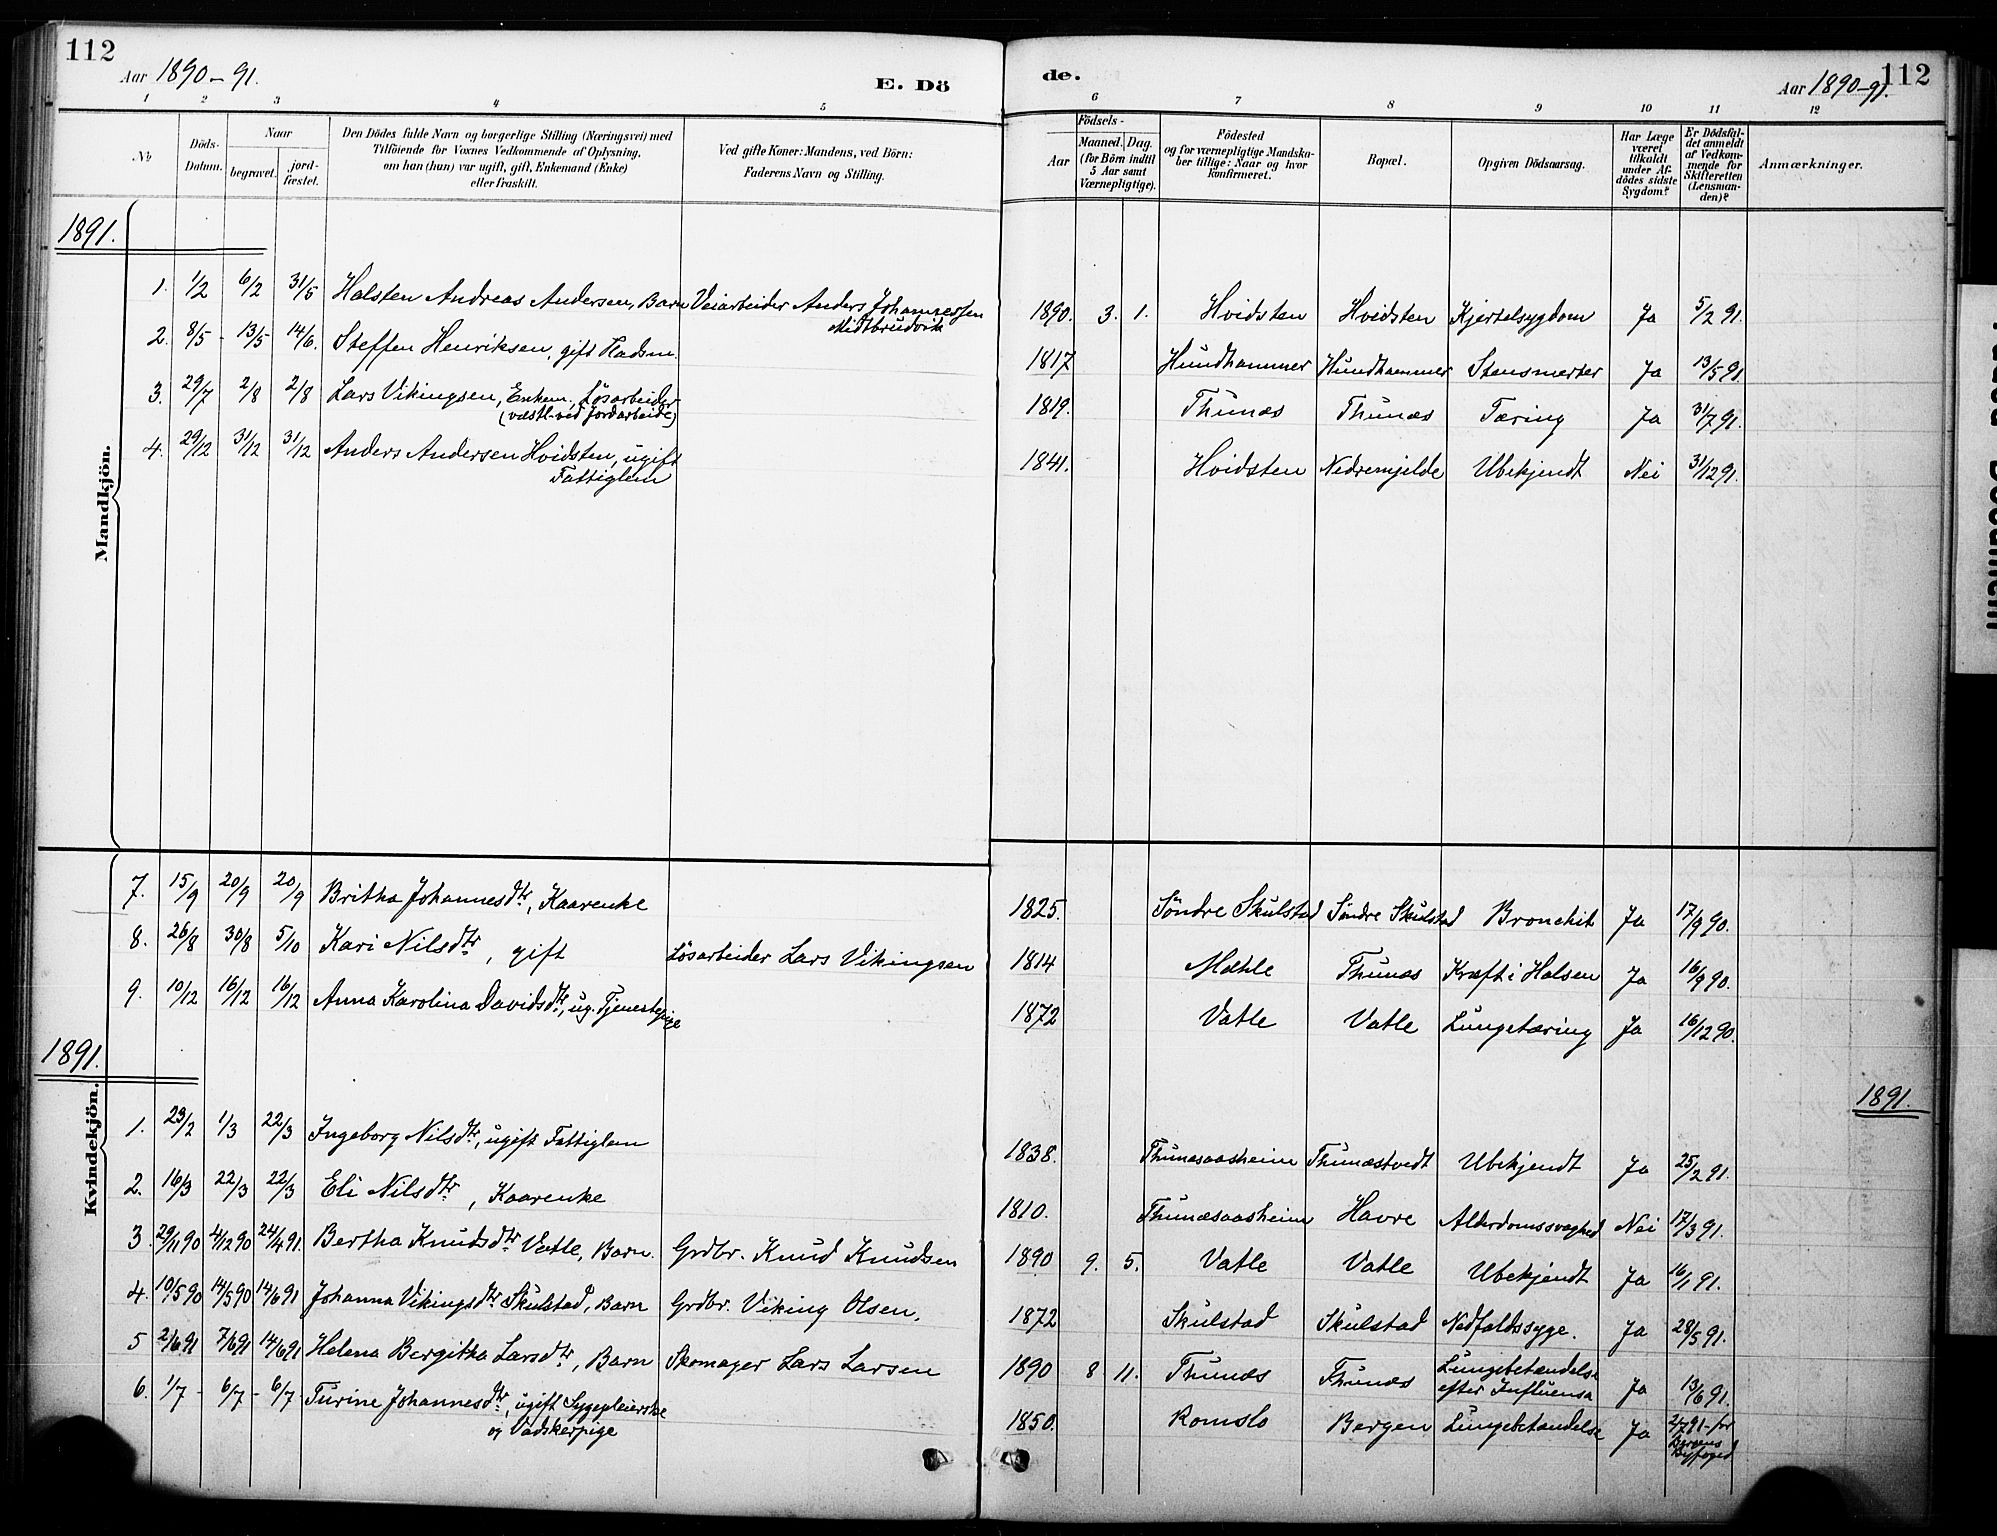 112
Aar 1890-91.
E. Dö
de.
Aar 1890-91.
112
1 2 3 4 5 6 7 8 9 10 11 12
No
Döds-Datum.
Naar
begravet.
jordfæstet.
Den Dödes fulde Navn og borgerlige Stilling (Næringsvei) med
Tilföiende for Voxnes Vedkommende af Oplysning,
om han (hun) var ugift, gift, Enkemand (Enke)
eller fraskilt.
Ved gifte Koner: Mandens, ved Börn:
Faderens Navn og Stilling.
Födsels-
Aar
Maaned. Dag.
(for Börn indtil
5 Aar samt
Værnepligtige).
Födested
og for værnepligtige Mandska-
ber tillige: Naar og hvor
konfirmeret.
Bopæl.
Opgiven Dödsaarsag.
Har Læge
været
tilkaldt
under Af-
dödes sidste
Sygdom?
Er Dödsfal-
det anmeldt
af Vedkom-
mende for
Skifteretten
(Lensman-
den)?
Anmærkninger.
1891.
Mandkjön.
1. 1/2 6/2 31/5 Halsten Andreas Andersen, Barn Veiarbeider Anders Johannessen
Midtbrudvik
1890. 3. 1. Hvidsten Hvidsten Kjertelsygdom Ja 5/2 91.
2. 8/5 - 13/5 14/6. Steffen Henriksen, gift
1817 Hundhammer Hundhammer Stensmerter Ja 13/5 91.
3. 29/7 2/8 2/8 Lars Vikingsen, Enkem. Lösarbeider
(væstl. ved Jordarbeide)
1819. Thunæs Thunæs Tæring Ja 31/7 91.
4. 29/12 31/12 31/12 Anders Andersen Hvidsten, ugift
Fattiglem
1841. Hvidsten Nedremjelde Ubekjendt Nei 31/12 91.
7. 15/9 20/9 20/9 Britha Johannesdtr, Kaarenke
1825. Söndre Skulstad Söndre Skulstad Bronchit Ja 17/9 90.
8. 26/8 30/8 5/10 Kari Nilsdtr, gift Lösarbeider Lars Vikingsen
1814 Mæhle Thunæs Kræft i Halsen Ja 16/9 90.
9. 10/12 16/12 16/12 Anna Karolina Davidsdtr, ug. Tjenestepige
1872 Vatle Vatle Lungetæring Ja 16/12 90.
1891.
1891.
Kvindekjön.
1. 23/2 1/3 22/3 Ingeborg Nilsdtr, ugift Fattiglem
1838. Thunæsaasheim Thunæstvedt Ubekjendt Ja 25/2 91.
2. 16/3 22/3 22/3 Eli Nilsdtr, Kaarenke
1810. Thunæsaasheim Havre Alderdomssvaghed Nei 17/3 91.
3. 29/11 90 4/12 90 24/4 91. Bertha Knudsdtr Vatle, Barn. Grdbr. Knud Knudsen
1890 9. 5. Vatle Vatle Ubekjendt Ja 16/1 91.
4. 10/5 90 14/5 90 14/6 91 Johanna Vikingsdtr Skulstad, Barn Grdbr. Viking Olsen.
1872 Skulstad Skulstad Nedfaldssyge. Ja 28/5 91.
5 2/6 91 7/6 91 14/6 91 Helena Bergitha Larsdtr, Barn Skomager Lars Larsen
1890 8 11. Thunæs Thunæs Lungebetændelse
efter Influensa Ja 13/6 91.
6. 1/7 - 6/7 - 6/7 Turine Johannesdtr, ugift Sygepleierske
og Vadskerpige
1850. Romslo Bergen Lungebetændelse Ja 2/7 91 - for
Bergens
Byfoged